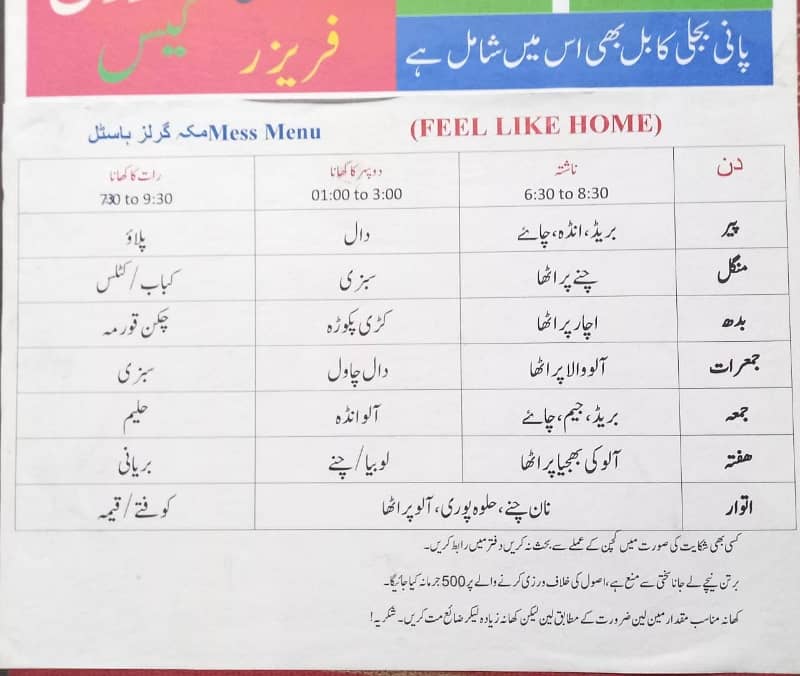 گیس
فریزر
پانی بجلی کا بل بھی اس میں شامل ہے
مکہ گرلز ہاسٹل Mess Menu (FEEL LIKE HOME)
دن ناشتہ دوپہر کا کھانا رات کا کھانا
6:30 to 8:30 01:00 to 3:00 7:30 to 9:30
پیر بریڈ، انڈہ، چائے دال پلاؤ
منگل چنے پراٹھا سبزی کباب/کٹلس
بدھ اچار پراٹھا کڑی پکوڑہ چکن قورمہ
جمعرات آلو والا پراٹھا دال چاول سبزی
جمعہ بریڈ، جیم، چائے آلو انڈہ حلیم
ہفتہ آلو کی بھجیا پراٹھا لوبیا/چنے بریانی
اتوار نان چنے، حلوہ پوری، آلو پراٹھا کوفتے/قیمہ
کسی بھی شکایت کی صورت میں کچن کے عملے سے بحث نہ کریں دفتر میں رابطہ کریں۔
برتن نیچے لے جانا سختی سے منع ہے، اصول کی خلاف ورزی کرنے والے پر 500 جرمانہ کیا جائیگا۔
کھانہ مناسب مقدار مین لین ضرورت کے مطابق لین لیکن کھانہ زیادہ لیکر ضائع مت کریں۔ شکریہ!